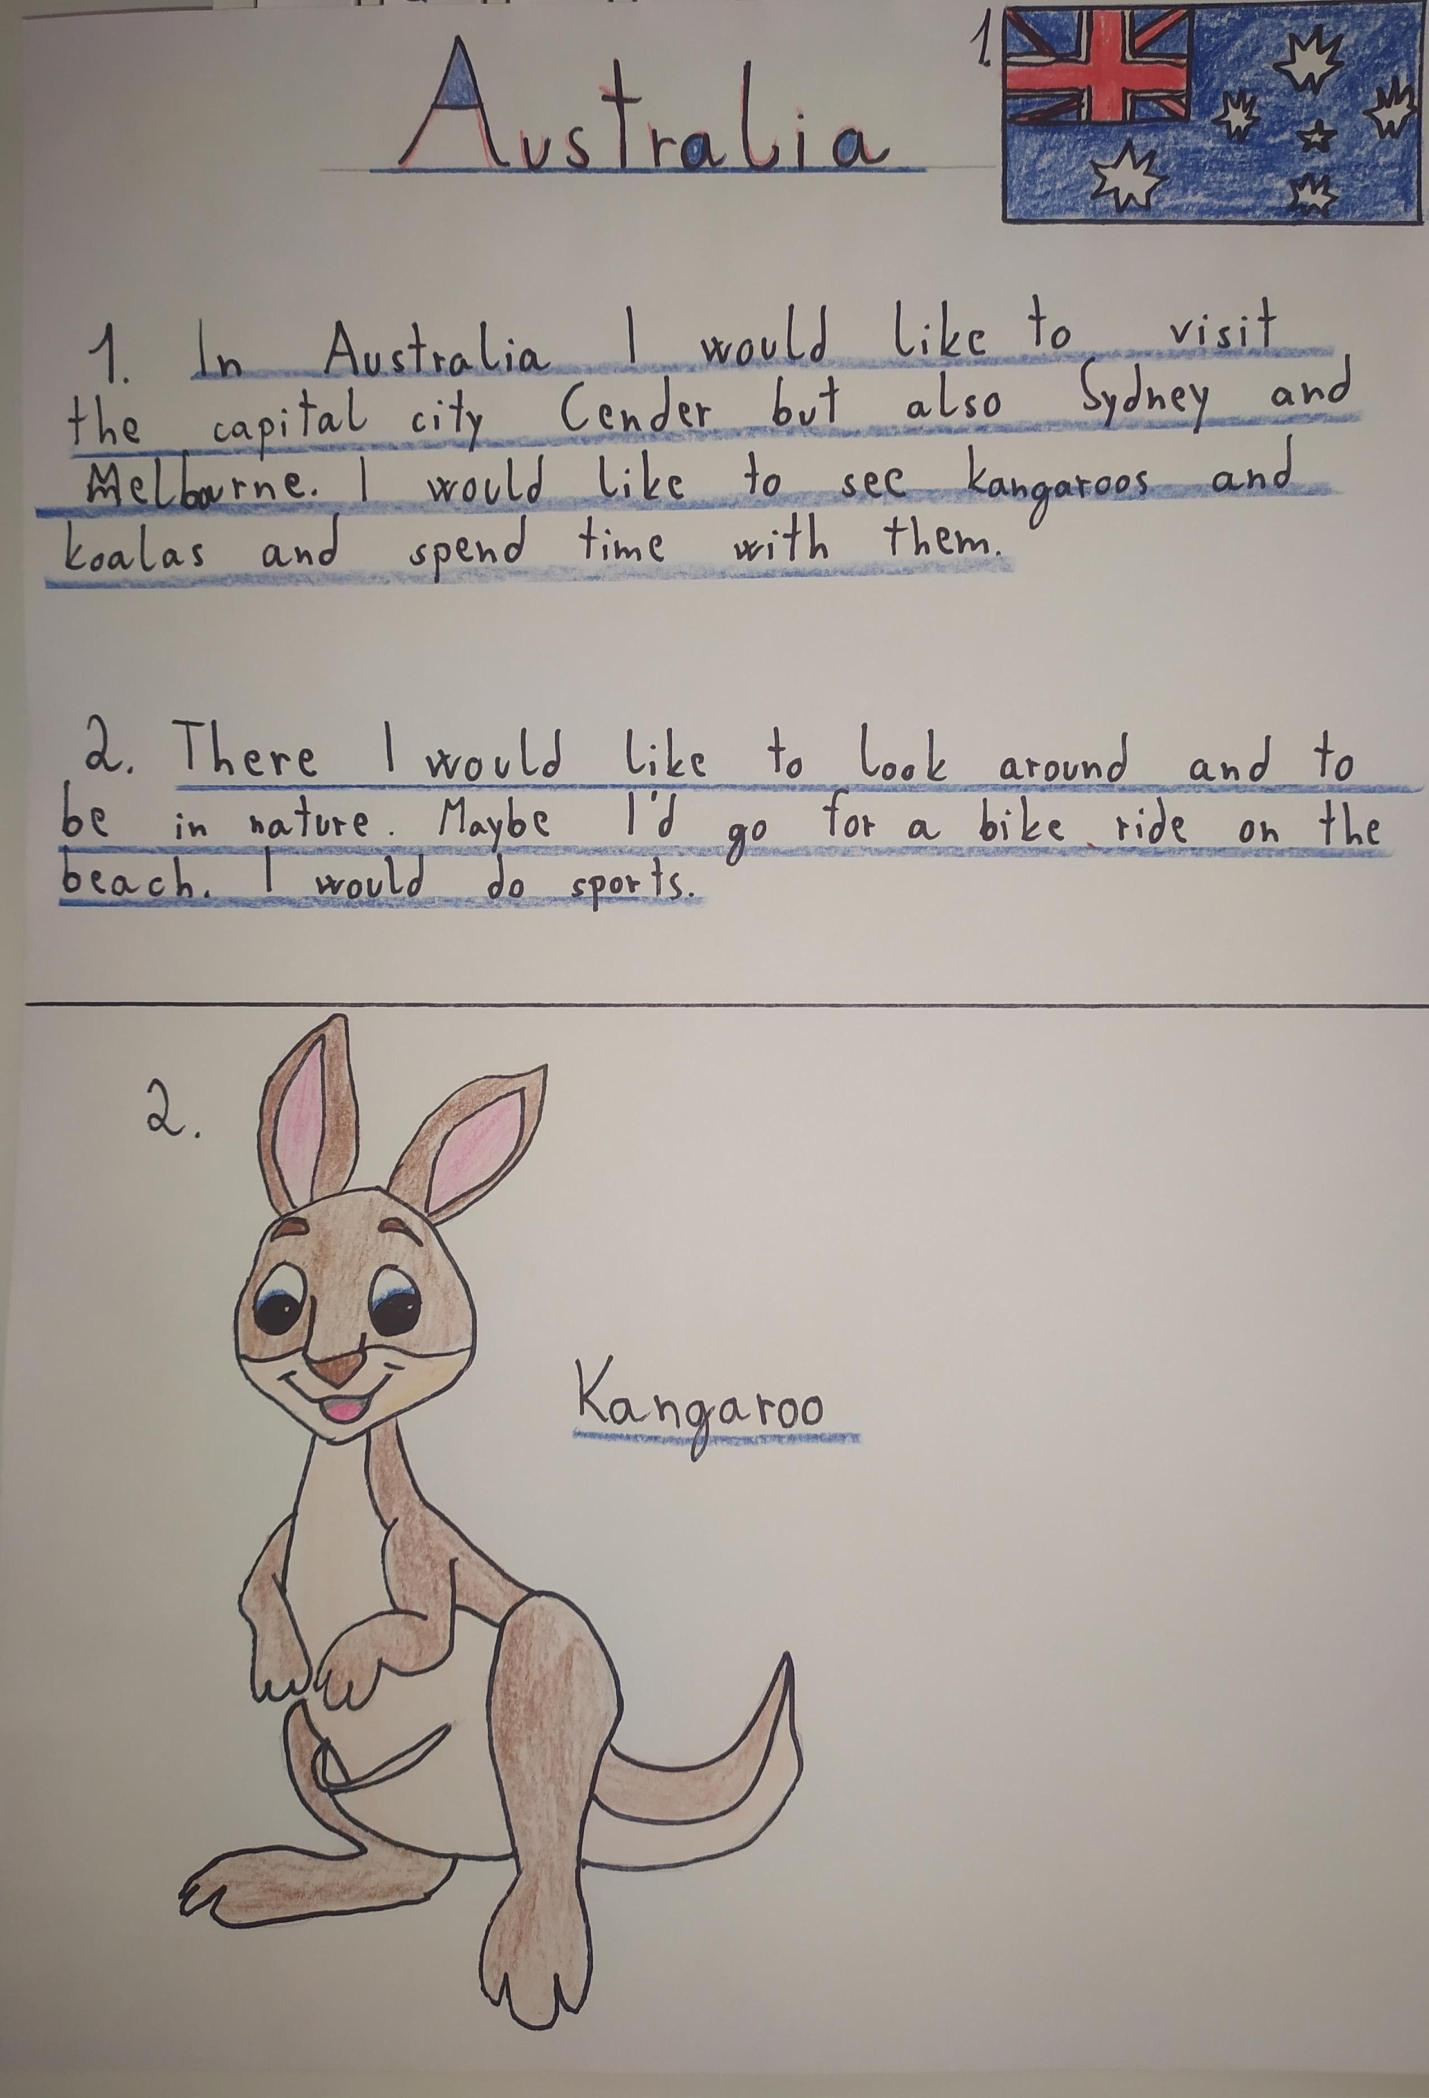 Australia
1.
1. In Australia I would like to visit
the capital city Cender but also Sydney and
Melbourne. I would like to see kangaroos and
koalas and spend time with them.
2. There I would like to look around and to
be in nature. Maybe I'd go for a bike ride on the
beach. I would do sports.
2.
Kangaroo